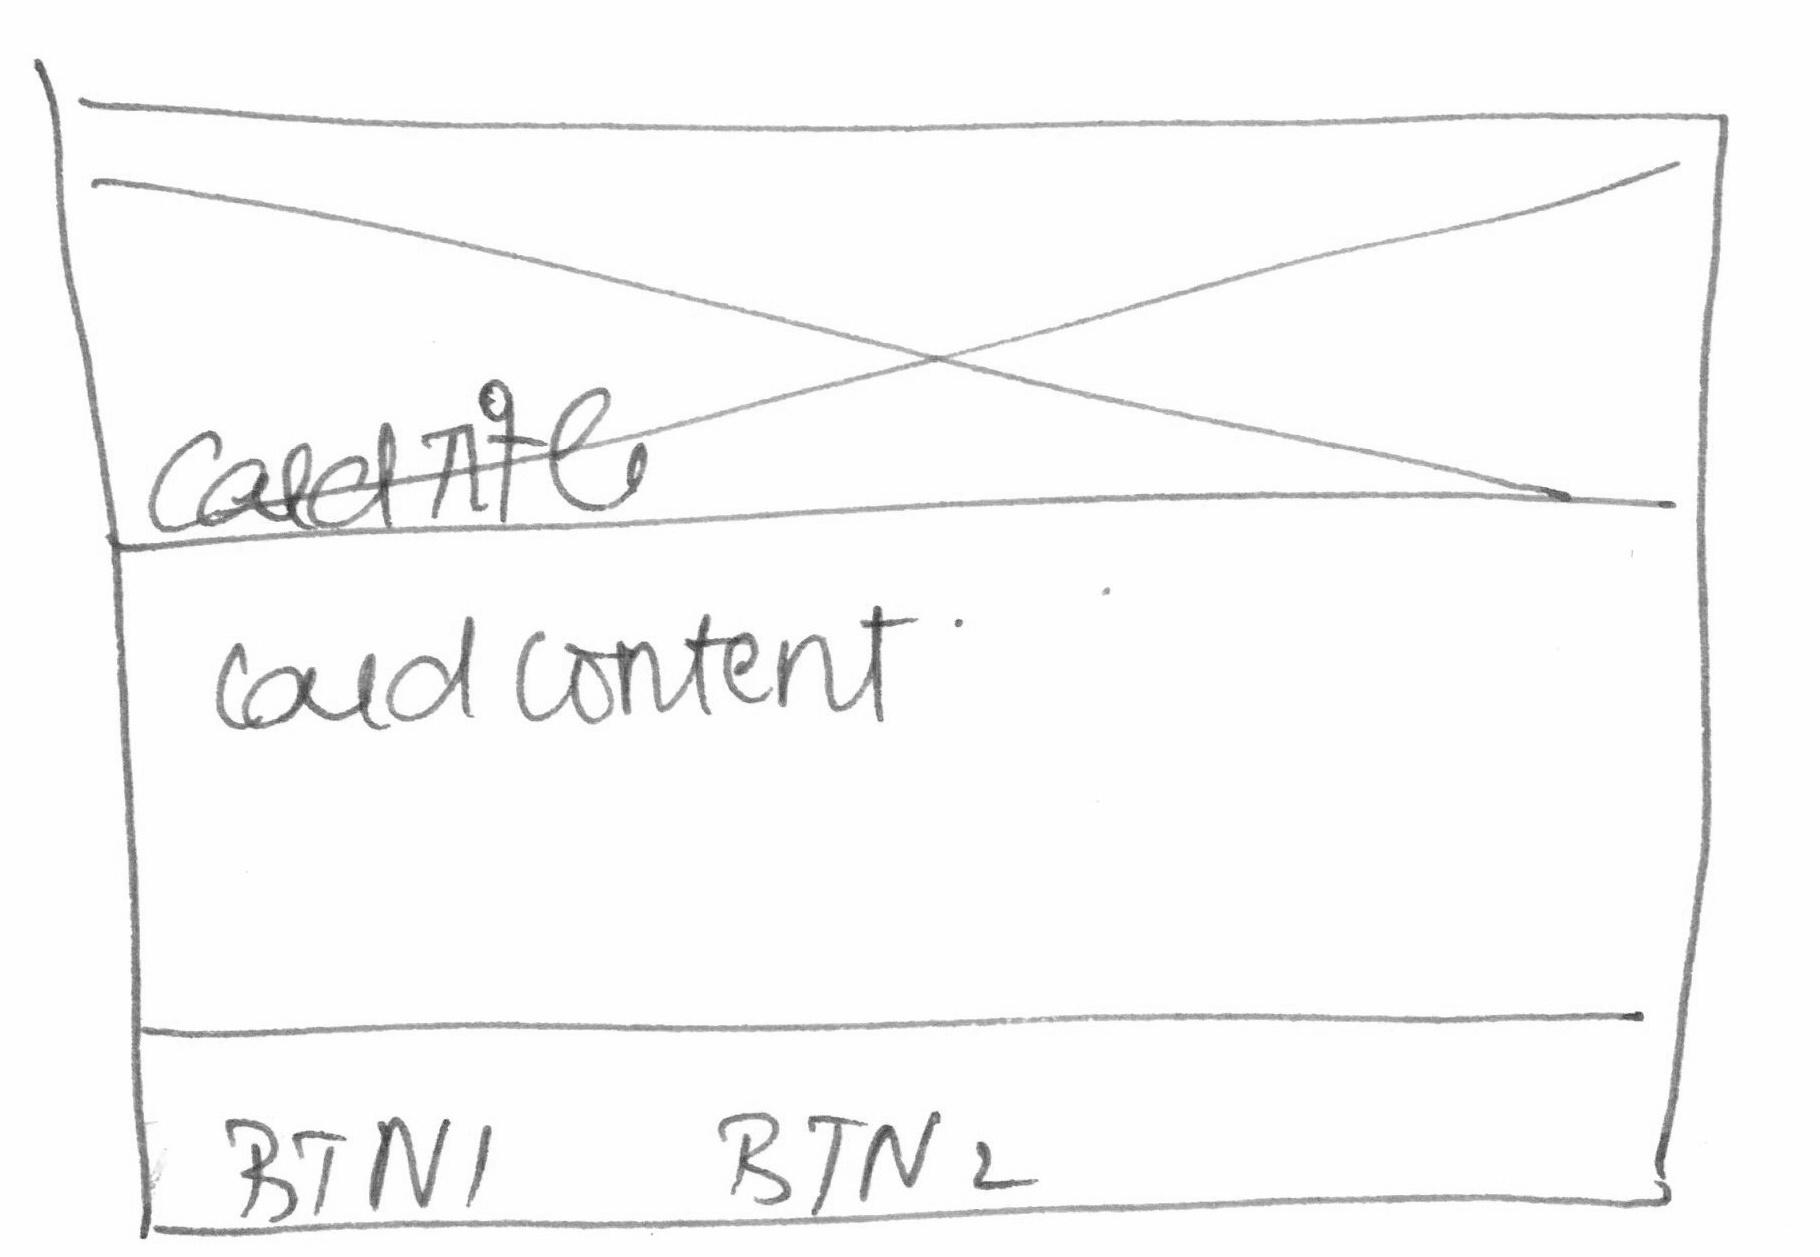 Card Title
Card Content.
BTN1 BTN2